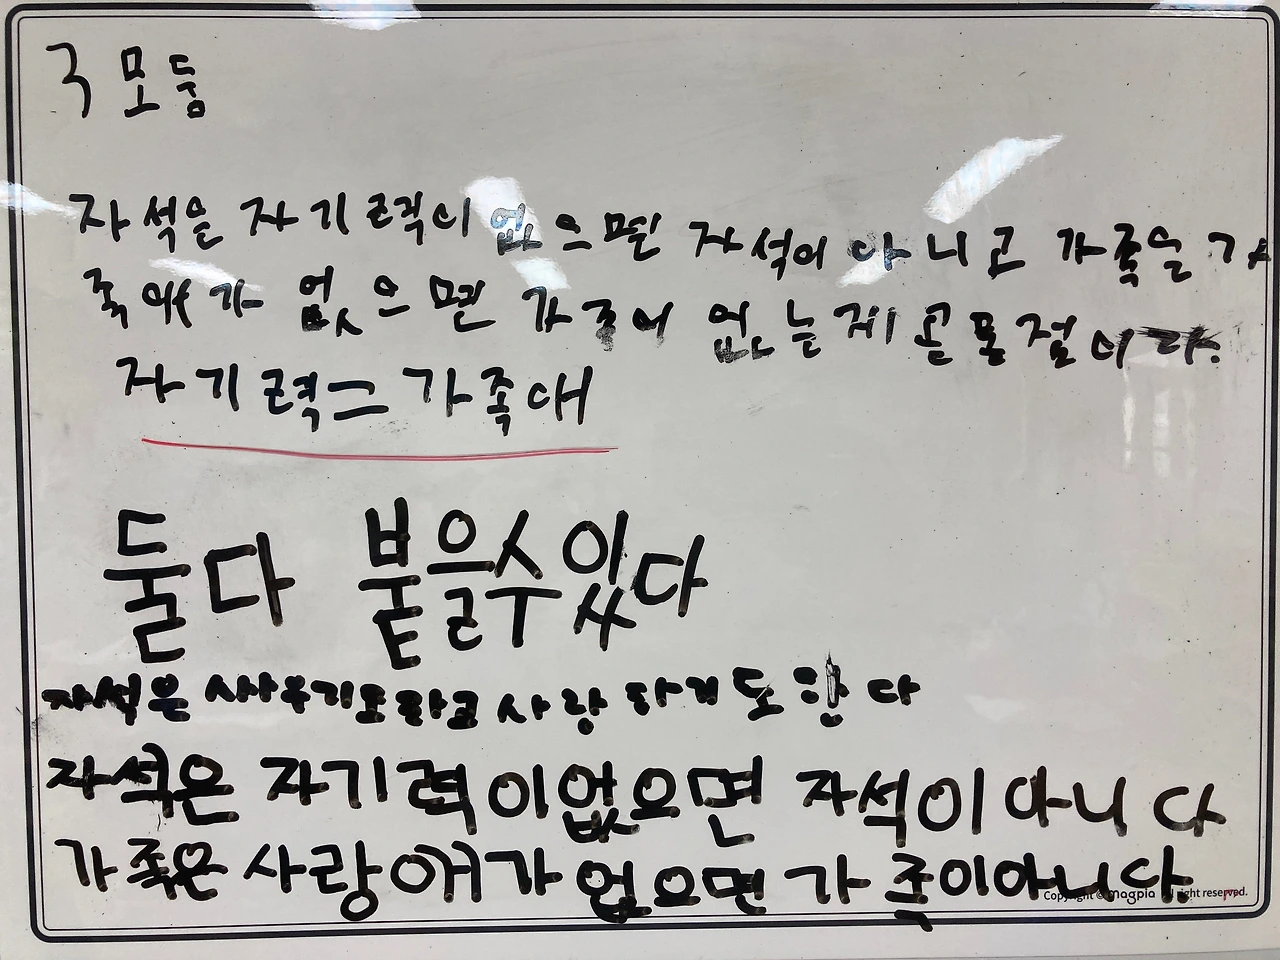 3 모둠
자석은 자기력이 없으면 자석이 아니고 가족은 가
족애가 없으면 가족이 없는게 공통점이다.
자기력= 가족애
둘다 붙을수있다
자석은 싸우기도하고 사랑 하기도 한다
자석은 자기력이없으면 자석이아니다
가족은 사랑애가 없으면 가족이아니다
Copyright © magpia All right reserved.